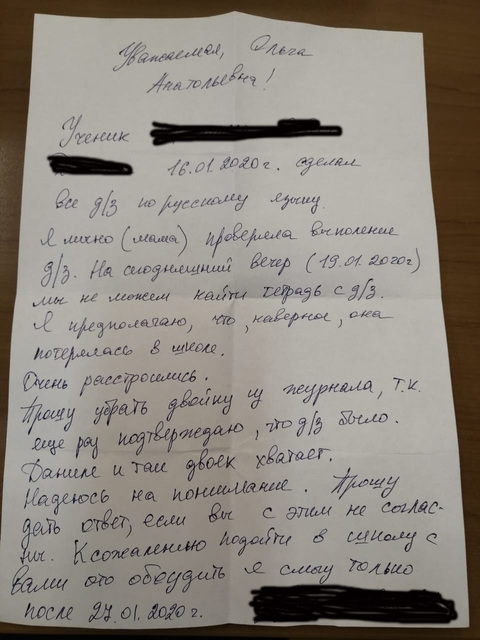 Уважаемая, Ольга
Анатольевна!
Ученик
16.01.2020г. сделал
все д/з по русскому языку.
Я лично (мама) проверяла выполение
д/з. На сегодняшний вечер (19.01.2020г)
мы не можем найти тетрадь с д/з.
Я предполагаю, что, наверное, она
потерялась в школе.
Очень расстроились.
Прошу убрать двойку из журнала, т.к.
еще раз подтверждаю, что д/з было.
Даниле и так двоек хватает.
Надеюсь на понимание. Прошу
дать ответ, если вы с этим не соглас-
ны. К сожалению подойти в школу с
вами это обсудить я смогу только
после 27.01.2020г.